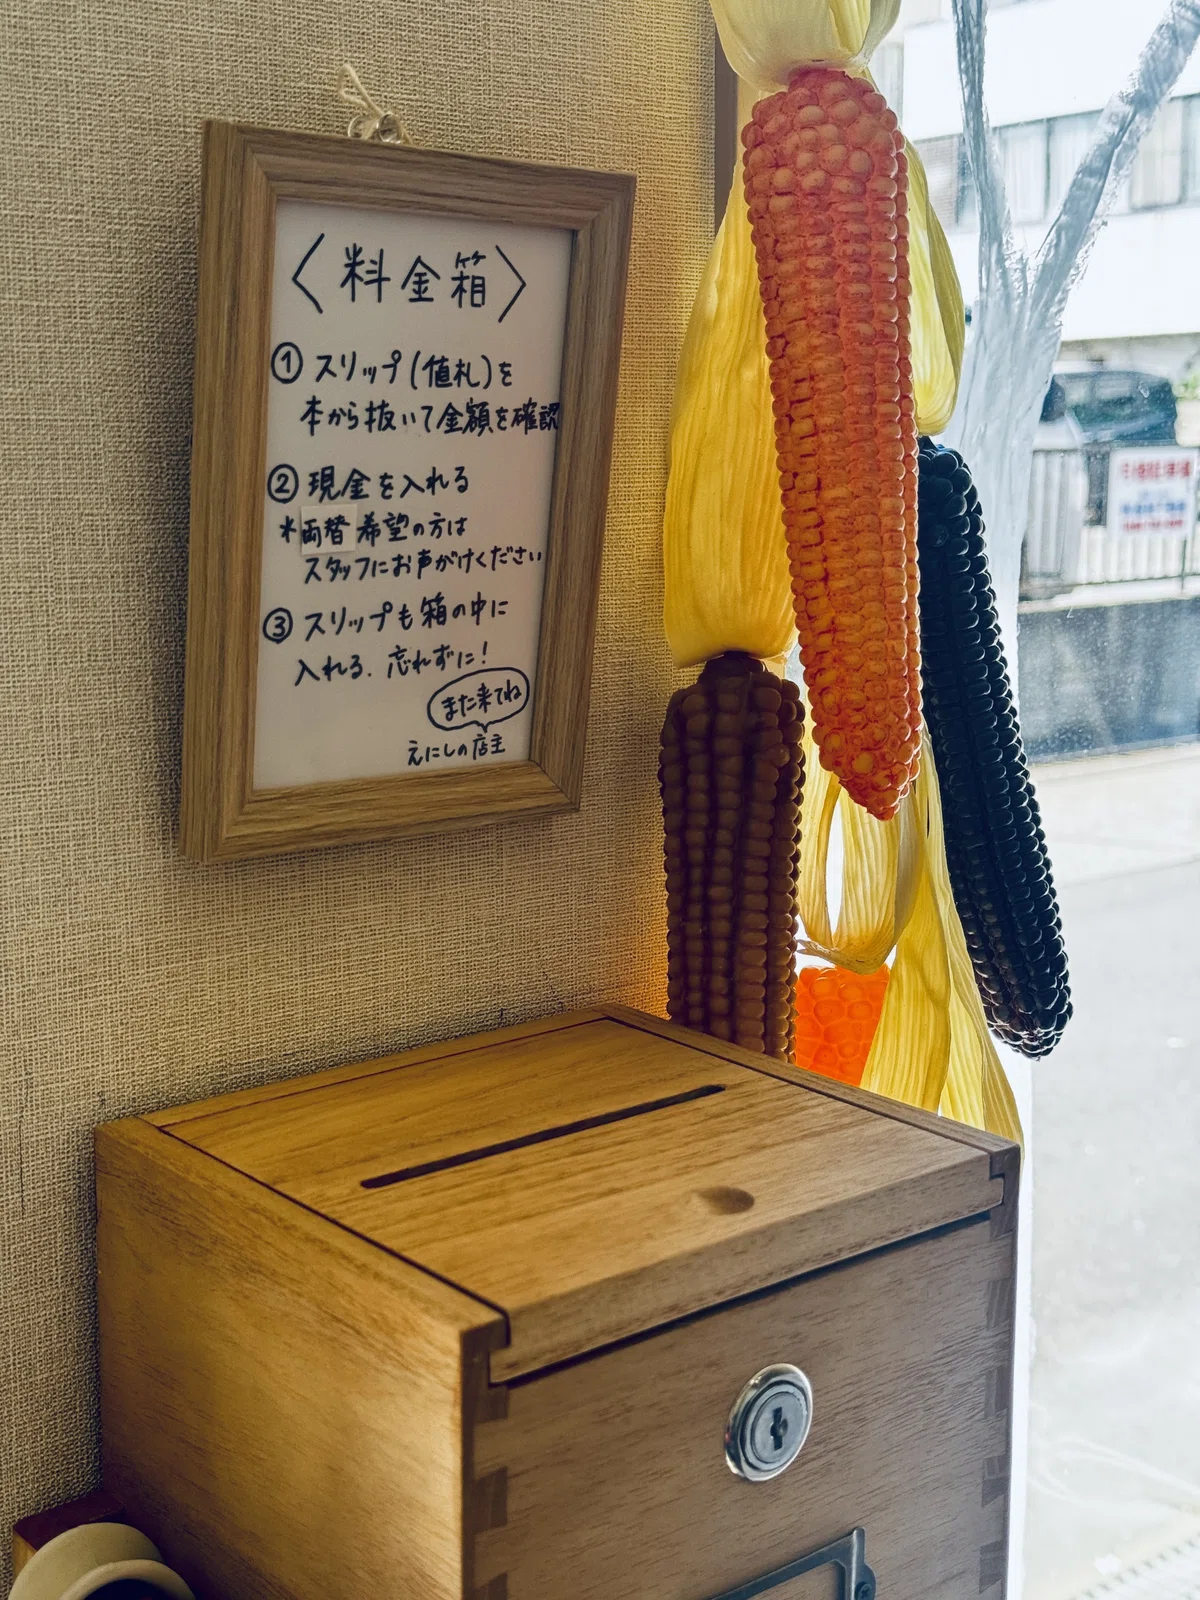 〈料金箱〉
① スリップ(値札)を
本から抜いて金額を確認
② 現金を入れる
*両替 希望の方は
スタッフにお声がけください
③ スリップも箱の中に
入れる. 忘れずに!
また来てね
えにしの店主